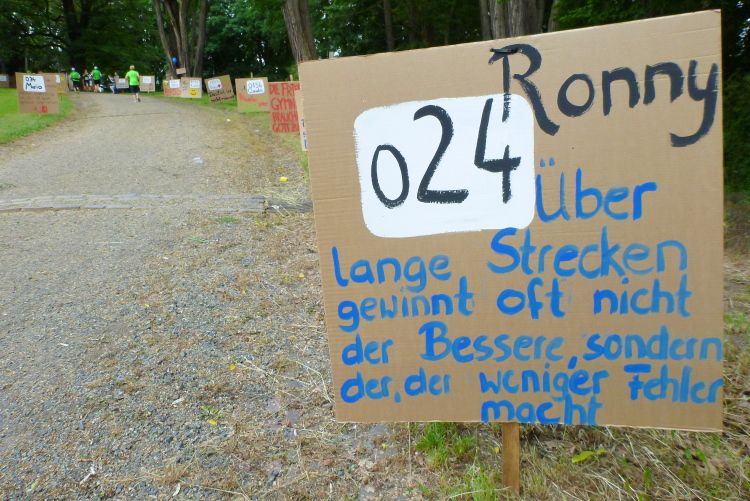 Ronny
024
Über
lange Strecken
gewinnt oft nicht
der Bessere, sondern
der, der weniger Fehler
macht
024
Mario